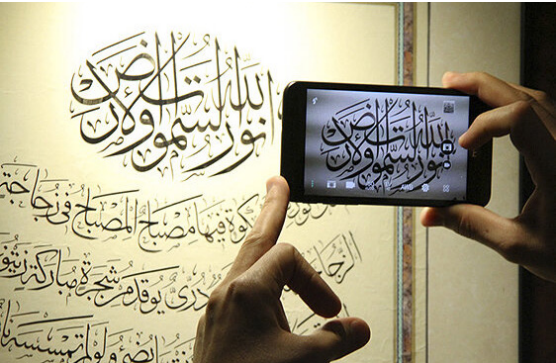 الله نور السموات والأرض
فيها مصباح المصباح في زجاجة
الزجا
دري يوقد من شجرة مباركة زيتو
يضيء ولو لم تمسسه نا
الله نور السموات والأرض